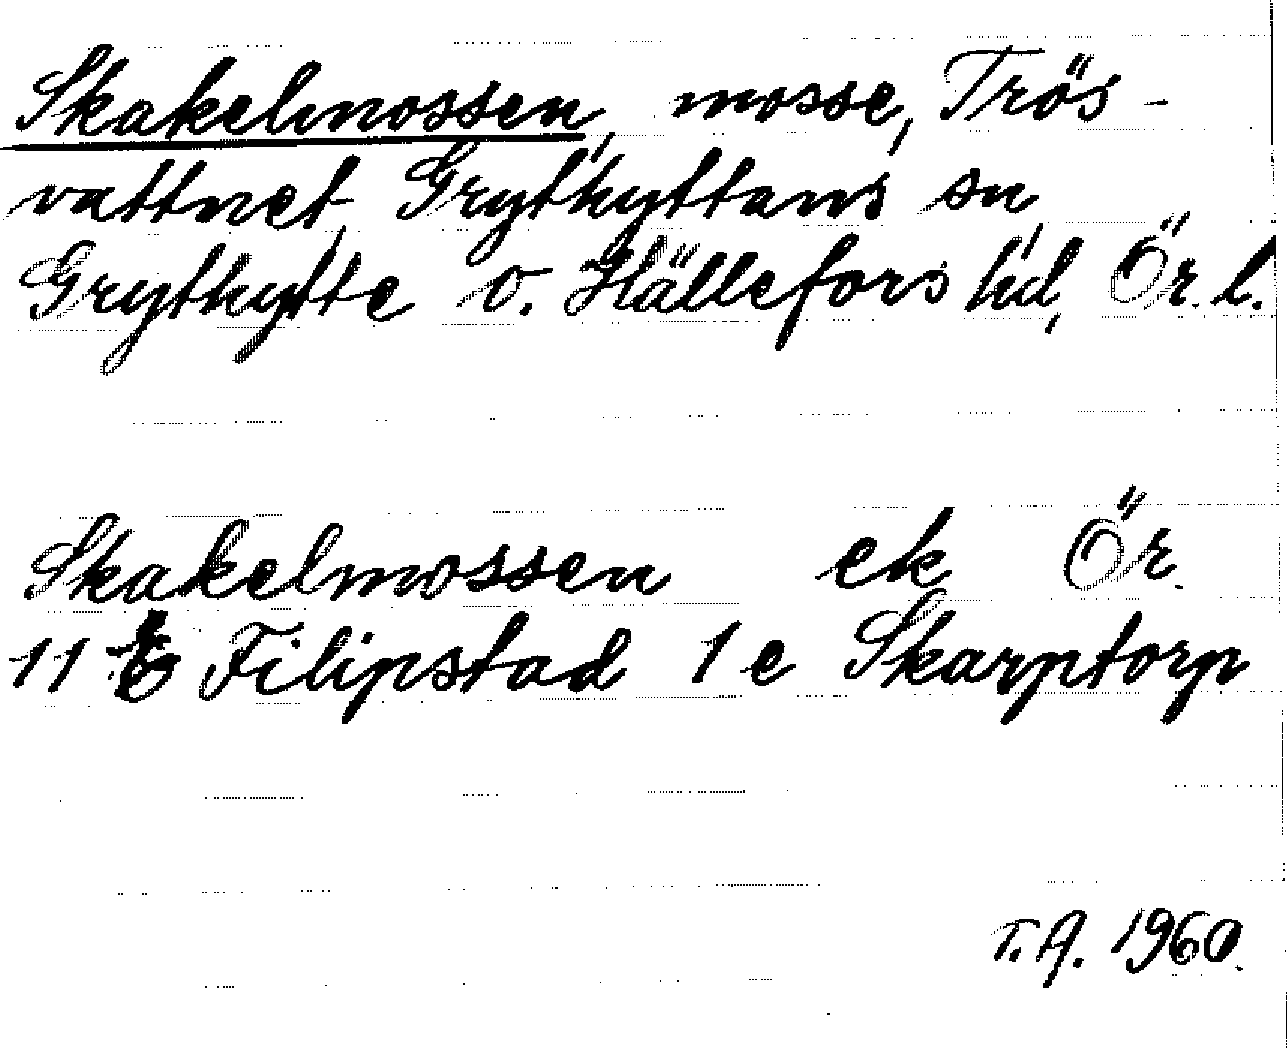 Skakelmossen, mosse, Trös-
vattnet, Grythyttans sn,
Grythytte o. Hällefors hd, Ör. l.
Skakelmossen ek Ör.
11 E Filipstad 1 e Skarptorp
T.A. 1960.